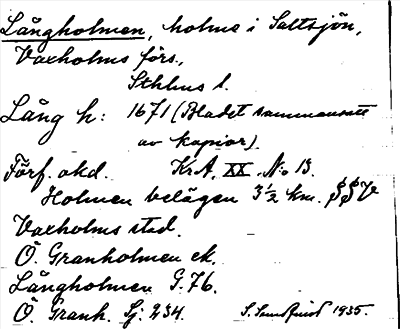 Långholmen, holme i Saltsjön,
Vaxholms förs.,
Sthlms l.
Lång h: 1671 (Bladet sammansatt
av kopior).
Förf. okd. KrA. XX. No 13.
Holmen belägen 3 1/2 km. SSV
Vaxholms stad.
Ö. Granholmen ek.
Långholmen G. 76.
Ö Granh. Sj: 234. S. Sundqvist 1935.